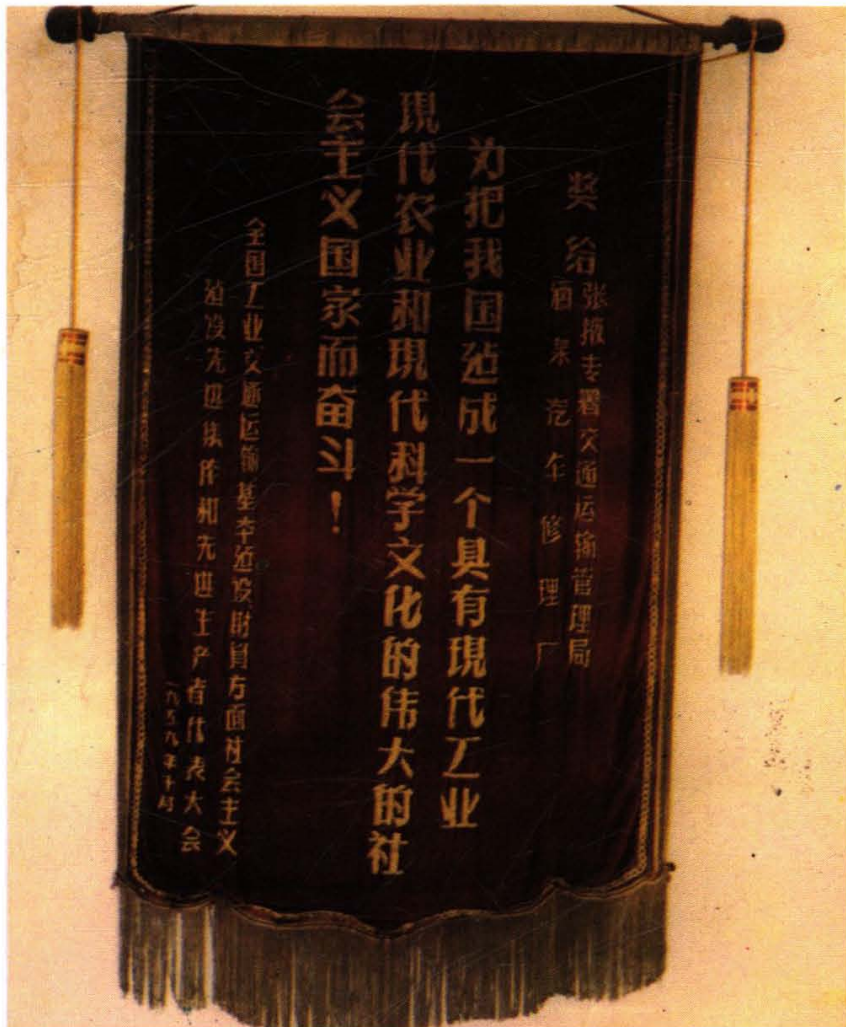 奖给
张掖专署交通运输管理局
酒泉汽车修理厂
为把我国建成一个具有現代工业
現代农业和現代科学文化的伟大的社
会主义国家而奋斗！
全国工业交通运输基本建设財貿方面社会主义
建设先进集体和先进生产者代表大会
一九五九年十月